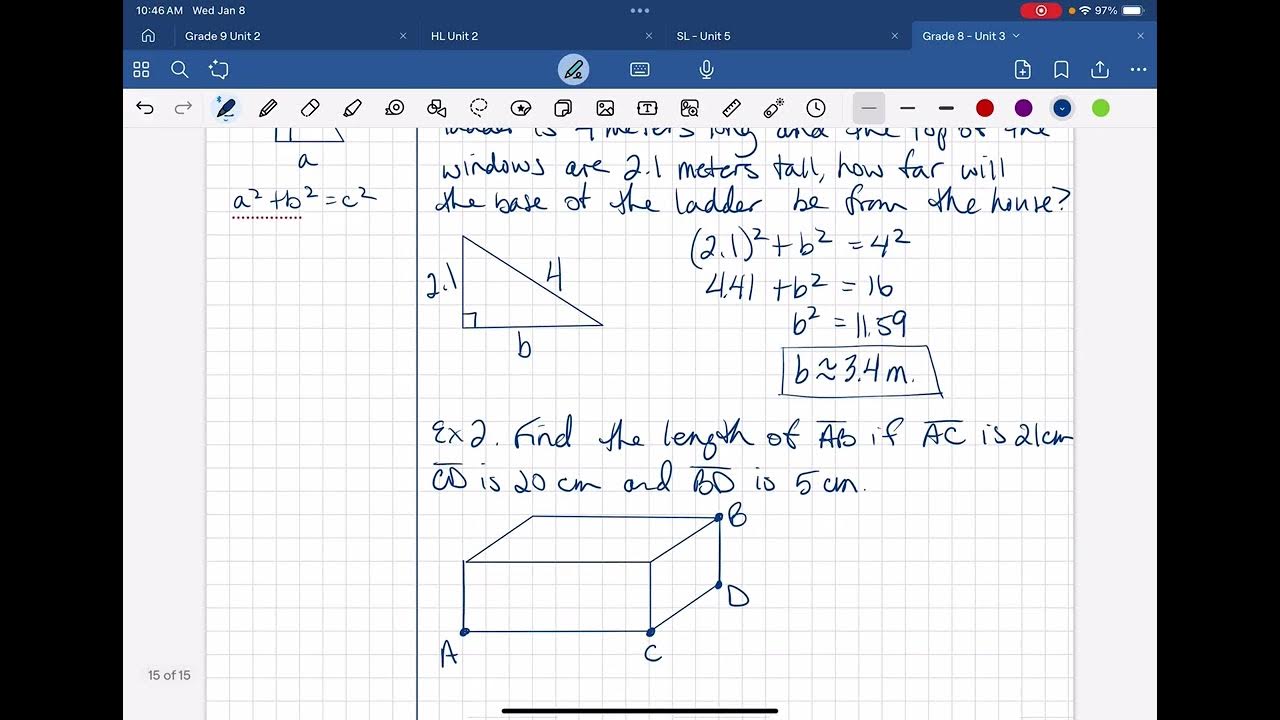 10:46 AM Wed Jan 8
97%
Grade 9 Unit 2
HL Unit 2
SL - Unit 5
Grade 8 - Unit 3
ladder is 4 meters long and the top of the
a
windows are 2.1 meters tall, how far will
a² + b² = c²
the base of the ladder be from the house?
(2.1)² + b² = 4²
2.1
4
4.41 + b² = 16
b² = 11.59
b
b ≈ 3.4 m.
Ex 2. Find the length of A̅B̅ if A̅C̅ is 21cm
C̅D̅ is 20 cm and B̅D̅ is 5 cm.
B
D
A
C
15 of 15